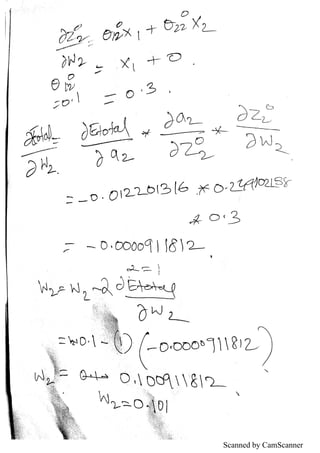 ∂Z₂⁰ = θ₁₂⁰x₁ + θ₂₂⁰x₂
∂Z₂⁰/∂w₂ = x₁ + 0.
θ₁₂⁰=0.1 = 0.3.
∂Etotal/∂w₂ = ∂Etotal/∂a₂ * ∂a₂/∂Z₂⁰ * ∂Z₂⁰/∂w₂
= -0.012201316 *
* 0.3
= -0.0000911812.
α=1
W₂= W₂ - α ∂Etotal/∂W₂
= 0.1 - (1)(-0.0000911812)
W₂ = 0.100911812.
W₂=0.101
Scanned by CamScanner